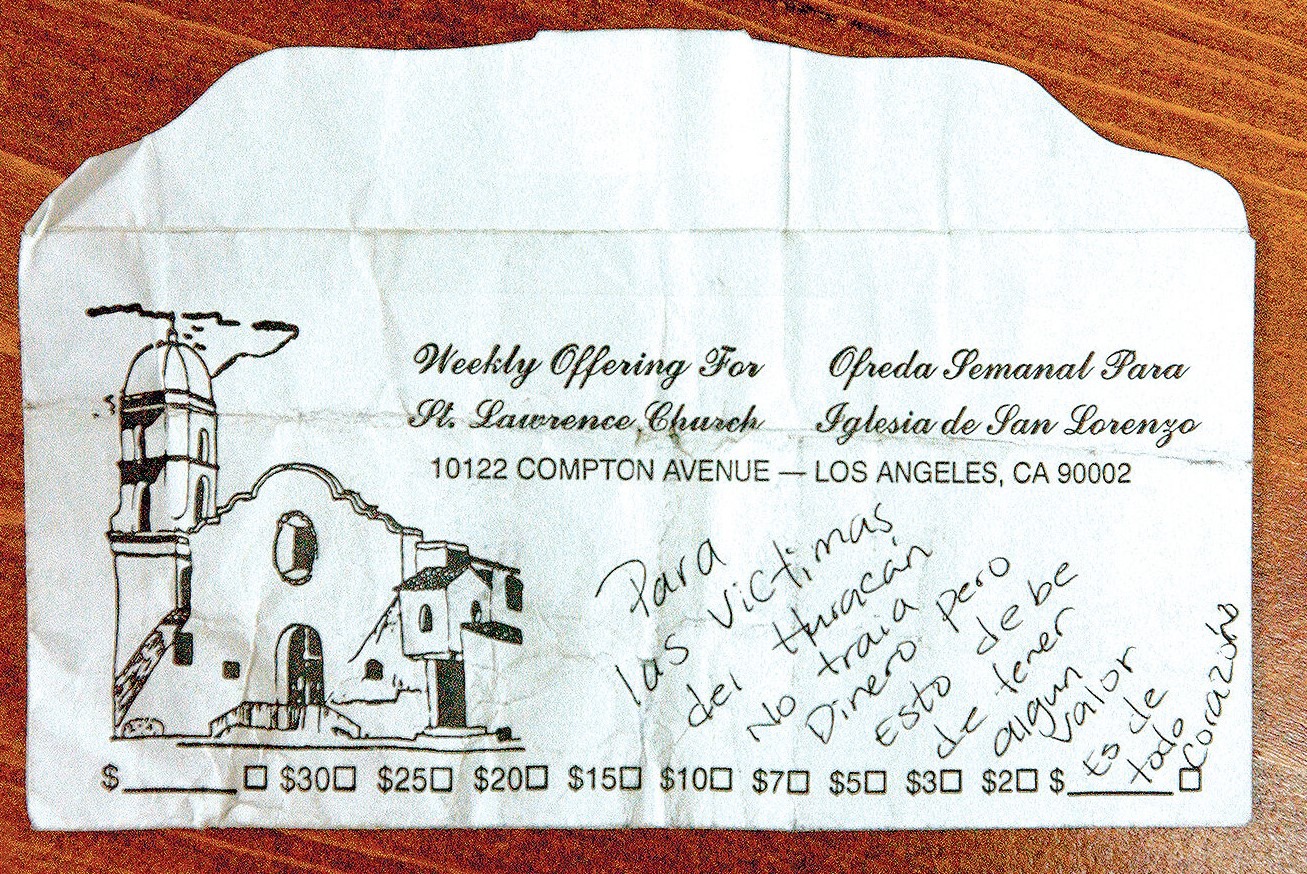 Weekly Offering For
St. Lawrence Church
Ofreda Semanal Para
Iglesia de San Lorenzo
10122 COMPTON AVENUE — LOS ANGELES, CA 90002
Para
las victimas
del Huracán
No traia
Dinero pero
Esto debe
de tener
algun
valor
Es de
todo
corazón
$ ☐ $30☐ $25☐ $20☐ $15☐ $10☐ $7☐ $5☐ $3☐ $2☐ $ ☐